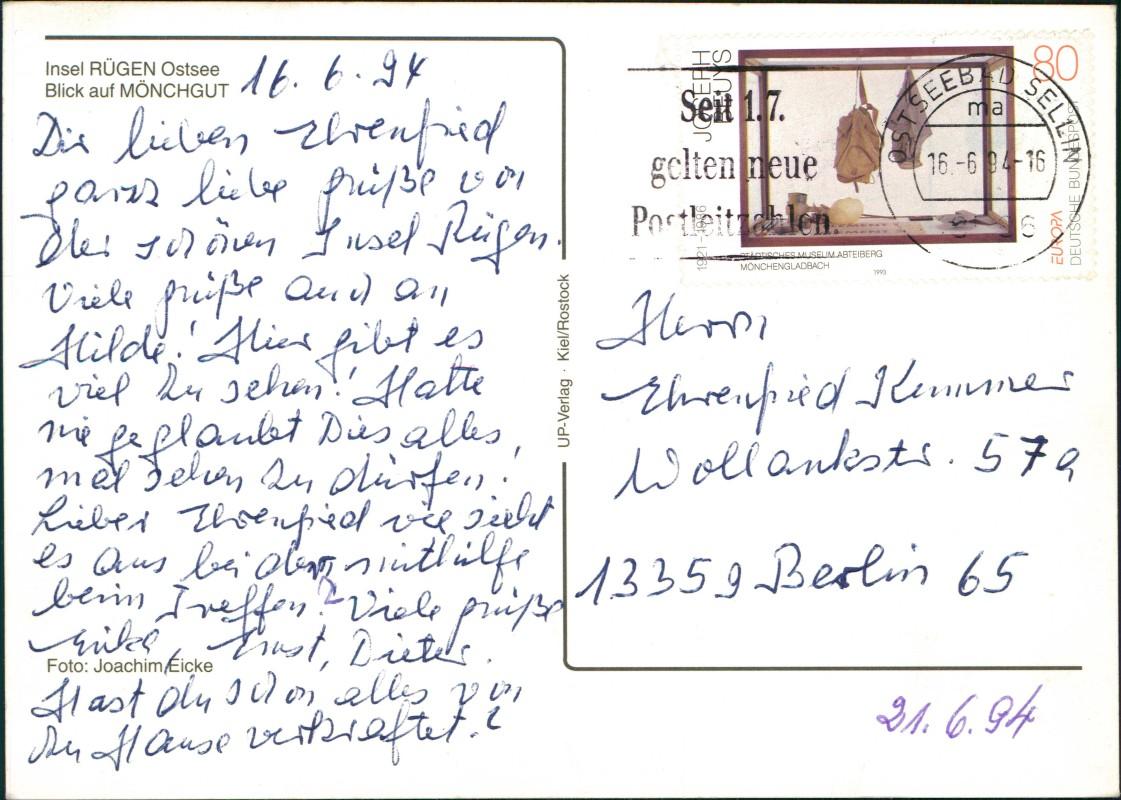 Insel RÜGEN Ostsee
Blick auf MÖNCHGUT
16. 6. 94
Die lieben Ehrenfried
ganz liebe grüße von
der schönen Insel Rügen.
Viele grüße auch an
Hilde! Hier gibt es
viel zu sehen! Hatte
nie geglaubt Dies alles,
mal sehen zu dürfen!
Lieber Ehrenfried wie sieht
es aus bei der mithilfe
beim Treffen? Viele grüße
Ernst, Dieter.
Foto: Joachim Eicke
Hast du schon alles von
zu Hause verkraftet?
UP-Verlag · Kiel/Rostock
JOSEPH
BEUYS
1921–1986
80
Seit 1.7.
gelten neue
Postleitzahlen.
OSTSEEBAD SELLIN
ma
16.-6.94-16
STÄDTISCHES MUSEUM ABTEIBERG
MÖNCHENGLADBACH
1993
EUROPA
DEUTSCHE BUNDESPOST
Herrn
Ehrenfried Kummer
Wollankstr. 57a
13359 Berlin 65
21.6.94